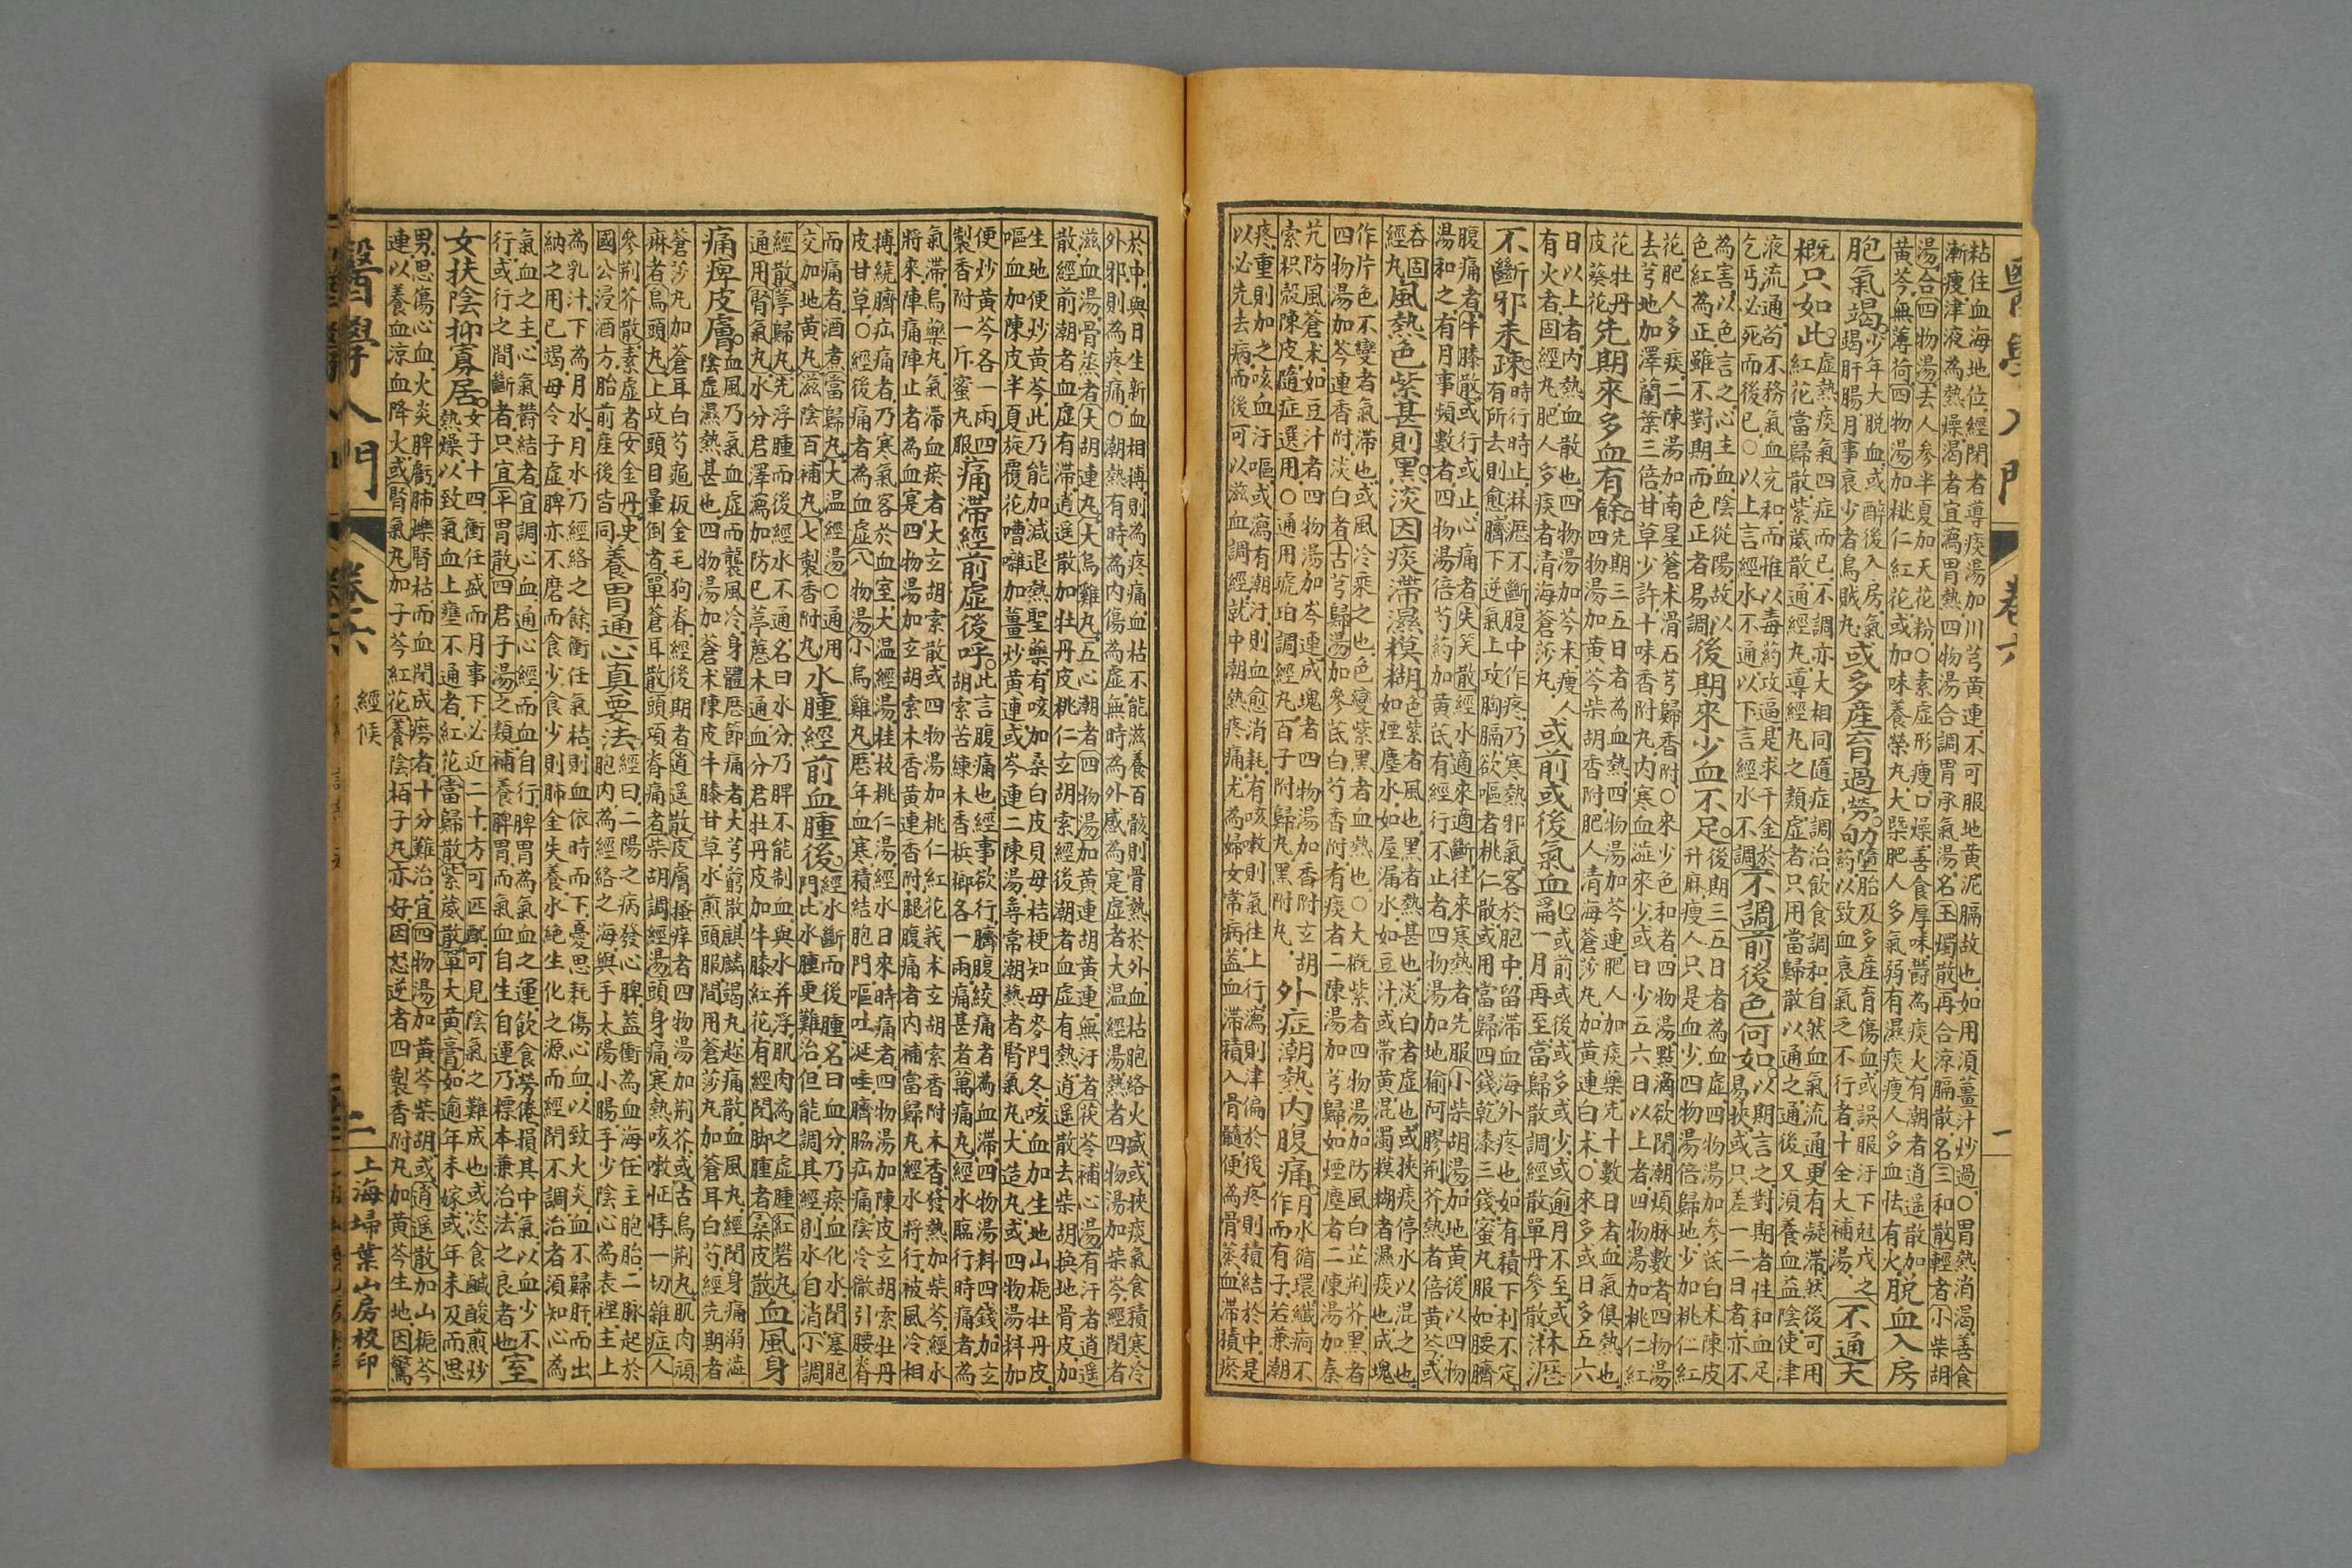 醫學入門
卷六
一
粘住血海地位經閉者導痰湯加川芎黃連不可服地黃泥膈故也如用須薑汁炒過○胃熱消渴善食
漸瘦津液為熱燥渴者宜瀉胃熱四物湯合調胃承氣湯名玉燭散再合涼膈散名三和散輕者小柴胡
湯合四物湯去人參半夏加天花粉○素虛形瘦口燥善食厚味鬱為痰火有潮者逍遙散加
黃芩無薄荷四物湯加桃仁紅花或加味養榮丸大槩肥人多氣弱有濕痰瘦人多血怯有火脫血入房
胞氣竭少年大脫血或醉後入房氣
竭肝腸月事衰少者烏賊丸或多產育過勞劬墮胎及多產育傷血或誤服汙下尅戊之
藥以致血衰氣乏不行者十全大補湯不通天
概只如此虛熱痰氣四症而已不調亦大相同隨症調治飲食調和自然血氣流通更有凝滯然後可用
紅花當歸散紫葳散通經丸導經丸之類虛者只用當歸散以通之通後又須養血益陰使津
液流通苟不務氣血充和而惟以毒葯攻逼是求千金於
乞丐必死而後已○以上言經水不通以下言經水不調不調前後色何如以期言之對期者性和血足
易挾或只差一二日者亦不
為害以色言之心主血陰從陽故以
色紅為正雖不對期而色正者易調後期來少血不足後期三五日者為血虛四物湯加參芪白术陳皮
升麻瘦人只是血少四物湯倍歸地少加桃仁紅
花肥人多痰二陳湯加南星蒼术滑石芎歸香附○來少色和者四物湯點滴欲閉潮煩脉數者四物湯
去芎地加澤蘭葉三倍甘草少許十味香附丸內寒血澁來少或日少五六日以上者四物湯加桃仁紅
花牡丹
皮葵花先期來多血有餘先期三五日者為血熱四物湯加芩連肥人加痰藥先十數日者血氣俱熱也
四物湯加黃芩柴胡香附肥人清海蒼莎丸加黃連白术○來多或日多五六
日以上者內熱血散也四物湯加芩术瘦人
有火者固經丸肥人多痰者清海蒼莎丸或前或後氣血為或前或後或多或少或逾月不至或
一月再至當歸散調經散單丹參散淋瀝
不斷邪未疎時行時止淋瀝不斷腹中作疼乃寒熱邪氣客於胞中留滯血海外疼也如有積下利不定
有所去則愈臍下逆氣上攻胸膈欲嘔者桃仁散或用當歸四錢乾漆三錢蜜丸服如腰臍
腹痛者牛膝散或行或止心痛者失笑散經水適來適斷往來寒熱者先服小柴胡湯加地黃後以四物
湯和之有月事頻數者四物湯倍芍藥加黃芪有經行不止者四物湯加地榆阿膠荆芥熱者倍黃芩或
吞固
經丸風熱色紫甚則黑淡因痰滯濕糢糊色紫者風也黑者熱甚也淡白者虛也或挾痰停水以混之也
如煙塵水如屋漏水如豆汁或帶黃混濁糢糊者濕痰也成塊
作片色不變者氣滯也或風冷乘之也色變紫黑者血熱也○大概紫者四物湯加防風白芷荆芥黑者
四物湯加芩連香附淡白者古芎歸湯加參芪白芍香附有痰者二陳湯加芎歸如煙塵者二陳湯加秦
艽防風蒼术如豆汁者四物湯加芩連成塊者四物湯加香附玄胡
索枳殻陳皮隨症選用○通用琥珀調經丸百子附歸丸黑附丸外症潮熱內腹痛月水循環纖疴不
作而有子若兼潮
疼重則加之咳血汙嘔或瀉有潮汙則血愈消耗有咳嗽則氣往上行瀉則津偏於後疼則積結於中是
以必先去病而後可以滋血調經就中潮熱疼痛尤為婦女常病蓋血滯積入骨髓便為骨蒸血滯積瘀
於中與日生新血相搏則為疼痛血枯不能滋養百骸則骨熱於外血枯胞絡火盛或挾痰氣食積寒冷
外邪則為疼痛○潮熱有時為內傷為虛無時為外感為寔虛者大温經湯熱者四物湯加柴芩經閉者
滋血湯骨蒸者大胡連丸大烏雞丸五心潮者四物湯加黃連胡黃連無汙者茯苓補心湯有汙者逍遙
散經前潮者血虛有滯逍遙散加牡丹皮桃仁玄胡索經後潮者血虛有熱逍遙散去柴胡換地骨皮加
生地便炒黃芩此乃能加減退熱聖藥有咳加桑白皮貝母桔梗知母麥門冬咳血加生地山梔牡丹皮
嘔血加陳皮半夏旋覆花嘈囃加薑炒黃連或芩連二陳湯尋常潮熱者腎氣丸大造丸或四物湯料加
便炒黃芩各一兩四
製香附一斤蜜丸服痛滯經前虛後呼此言腹痛也經事欲行臍腹絞痛者為血滯四物湯料四錢加玄
胡索苦練木香梹榔各一兩痛甚者萬痛丸經水臨行時痛者為
氣滯烏藥丸氣滯血瘀者大玄胡索散或四物湯加桃仁紅花莪术玄胡索香附木香發熱加柴芩經水
將來陣痛陣止者為血寔四物湯加玄胡索木香黃連香附腿腹痛者內補當歸丸經水將行被風冷相
搏繞臍疝痛者乃寒氣客於血室大温經湯桂枝桃仁湯經水日來時痛者四物湯加陳皮玄胡索牡丹
皮甘草○經後痛者為血虛八物湯小烏雞丸厯年血寒積結胞門嘔吐涎唾臍脇疝痛陰冷徹引腰脊
而痛者酒煮當歸丸大温經湯○通用
交加地黃丸滋陰百補丸七製香附丸水腫經前血腫後經水斷而後腫名曰血分乃瘀血化水閉塞胞
門比水腫更難治但能調其經則水自消小調
經散葶歸丸先浮腫而後經水不通名曰水分乃脾不能制血與水并浮肌肉為之虛腫紅礬丸
通用腎氣丸水分君澤瀉加防巳葶藶木通血分君牡丹皮加牛膝紅花有經閉脚腫者桑皮散血風身
痛痺皮膚血風乃氣血虛而襲風冷身體厯節痛者大芎窮散麒麟竭丸趁痛散血風丸經閉身痛溺澁
陰虛濕熱甚也四物湯加蒼术陳皮牛膝甘草水煎頭服間用蒼莎丸加蒼耳白芍經先期者
蒼莎丸加蒼耳白芍龜板金毛狗脊經後期者逍遙散皮膚搔痒者四物湯加荆芥或古烏荆丸肌肉頑
麻者烏頭丸上攻頭目暈倒者單蒼耳散頭項脊痛者柴胡調經湯頭身痛寒熱咳嗽怔悸一切雜症人
參荆芥散素虛者女金丹史
國公浸酒方胎前産後皆同養胃通心真要法經曰二陽之病發心脾蓋衝為血海任主胞胎二脉起於
胞內為經絡之海與手太陽小腸手少陰心為表裡主上
為乳汁下為月水月水乃經絡之餘衝任氣枯則血依時而下憂思耗傷心血以致火炎血不歸肝而出
納之用已竭母令子虛脾亦不磨而食少食少則肺金失養水絕生化之源而經閉不調治者須知心為
氣血之主心氣鬱結者宜調心血通心經而血自行脾胃為氣血之運飲食勞倦損其中氣以血少不
行或行之間斷者只宜平胃散四君子湯之類補養脾胃而氣血自生自運乃標本兼治法之良者也室
女扶陰抑寡居女子十四衝任盛而月事下必近二十方可匹配可見陰氣之難成也或恣食鹹酸煎炒
熱燥以致氣血上壅不通者紅花當歸散紫葳散單大黃膏如逾年未嫁或年未及而思
男思傷心血火炎脾虧肺爍腎枯而血閉成癆者十分難治宜四物湯加黃芩柴胡或逍遙散加山梔芩
連以養血涼血降火或腎氣丸加子芩紅花養陰栢子丸亦好因怒逆者四製香附丸加黃芩生地因驚
醫學入門
卷六
經候
二
上海埽葉山房校印